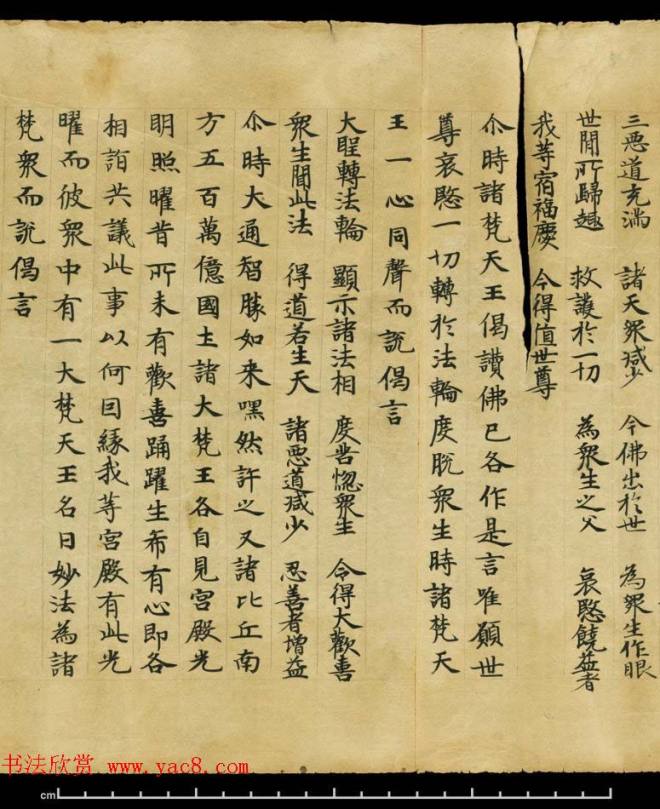 三惡道充滿 諸天衆減少 今佛出於世 為衆生作眼
世間所歸趣 救護於一切 為衆生之父 哀愍饒益者
我等宿福慶 今得值世尊
尒時諸梵天王偈讚佛已各作是言唯願世
尊哀愍一切轉於法輪度脫衆生時諸梵天
王一心同聲而說偈言
大聖轉法輪 顯示諸法相 度苦惱衆生 令得大歡喜
衆生聞此法 得道若生天 諸惡道減少 忍善者增益
尒時大通智勝如来嘿然許之又諸比丘南
方五百萬億國土諸大梵王各自見宮殿光
明照曜昔所未有歡喜踊躍生希有心即各
相詣共議此事以何因緣我等宮殿有此光
曜而彼衆中有一大梵天王名曰妙法為諸
梵衆而說偈言
书法欣赏 www.yac8.com
cm